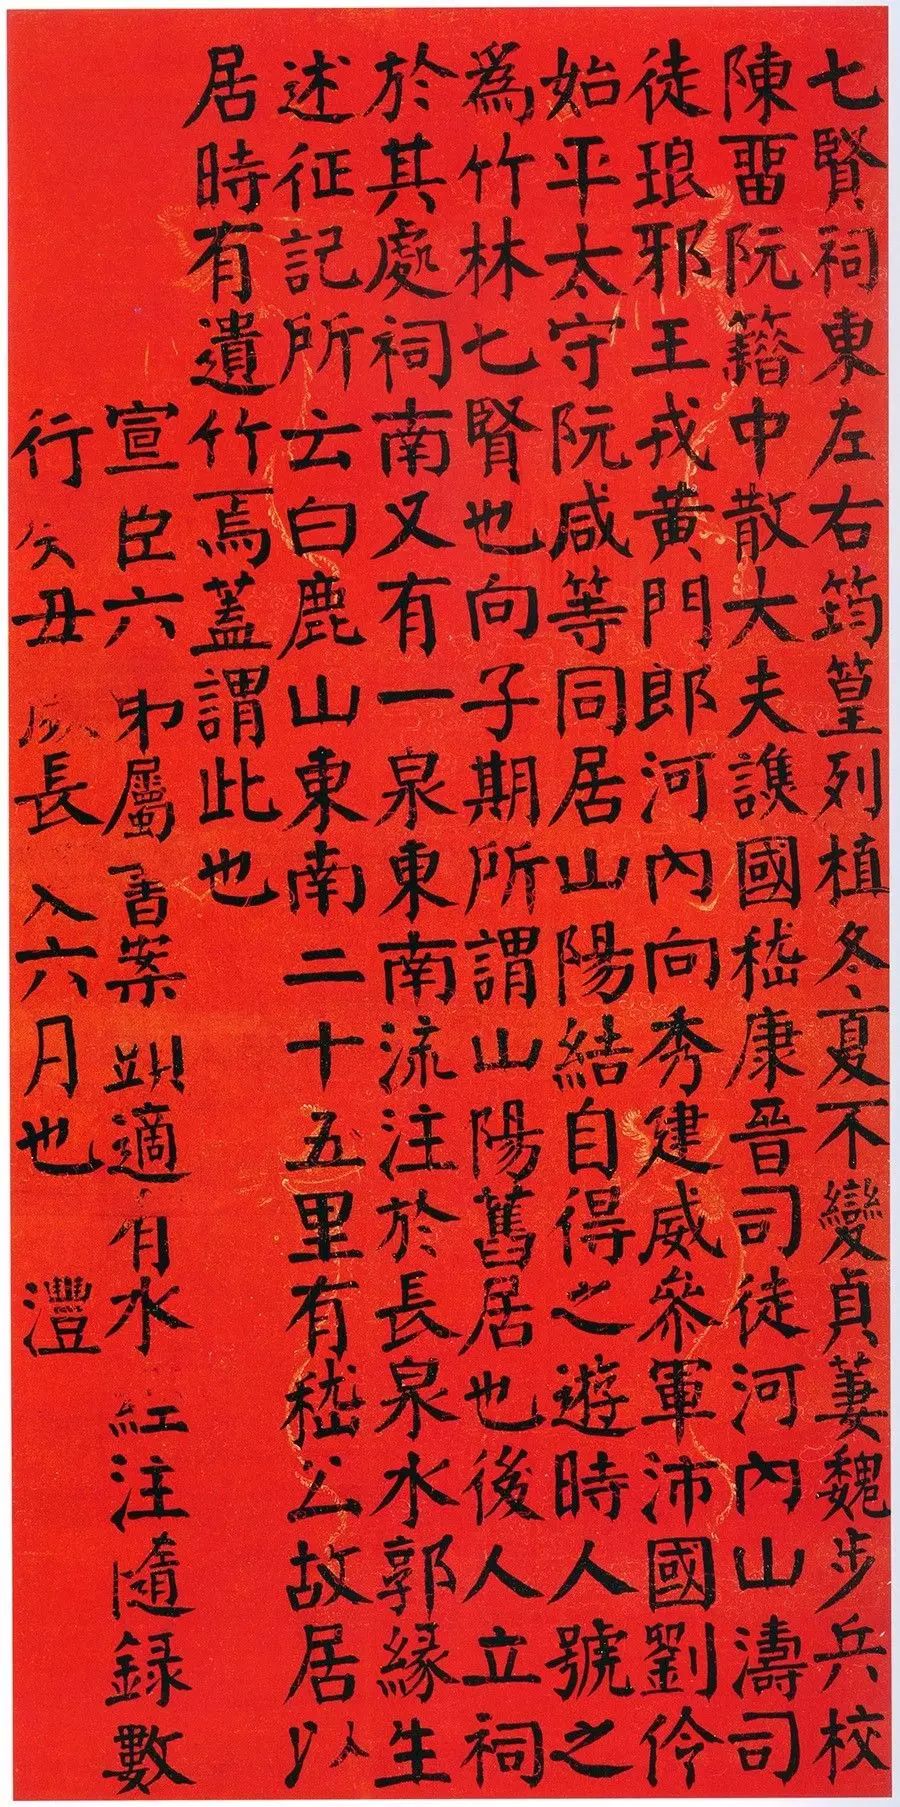 七賢祠東左右筠篁列植冬夏不變貞萋魏步兵校
陳畱阮籍中散大夫譙國嵇康晉司徒河內山濤司
徒琅邪王戎黃門郎河內向秀建威參軍沛國劉伶
始平太守阮咸等同居山陽結自得之遊時人號之
為竹林七賢也向子期所謂山陽舊居也後人立祠
於其處祠南又有一泉東南流注於長泉水郭緣生
述征記所云白鹿山東南二十五里有嵇公故居以
居時有遺竹焉蓋謂此也
宣臣六弟屬書案頭適有水經注隨錄數
行癸丑長六月也 灃